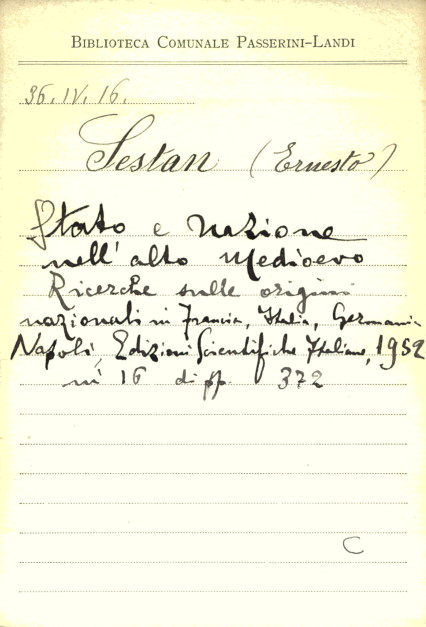 BIBLIOTECA COMUNALE PASSERINI-LANDI
36.IV.16.
Sestan (Ernesto)
Stato e nazione
nell'alto Medioevo
Ricerche sulle origini
nazionali in Francia, Italia, Germania
Napoli, Edizioni Scientifiche Italiane, 1952
in 16 di pp. 372
C